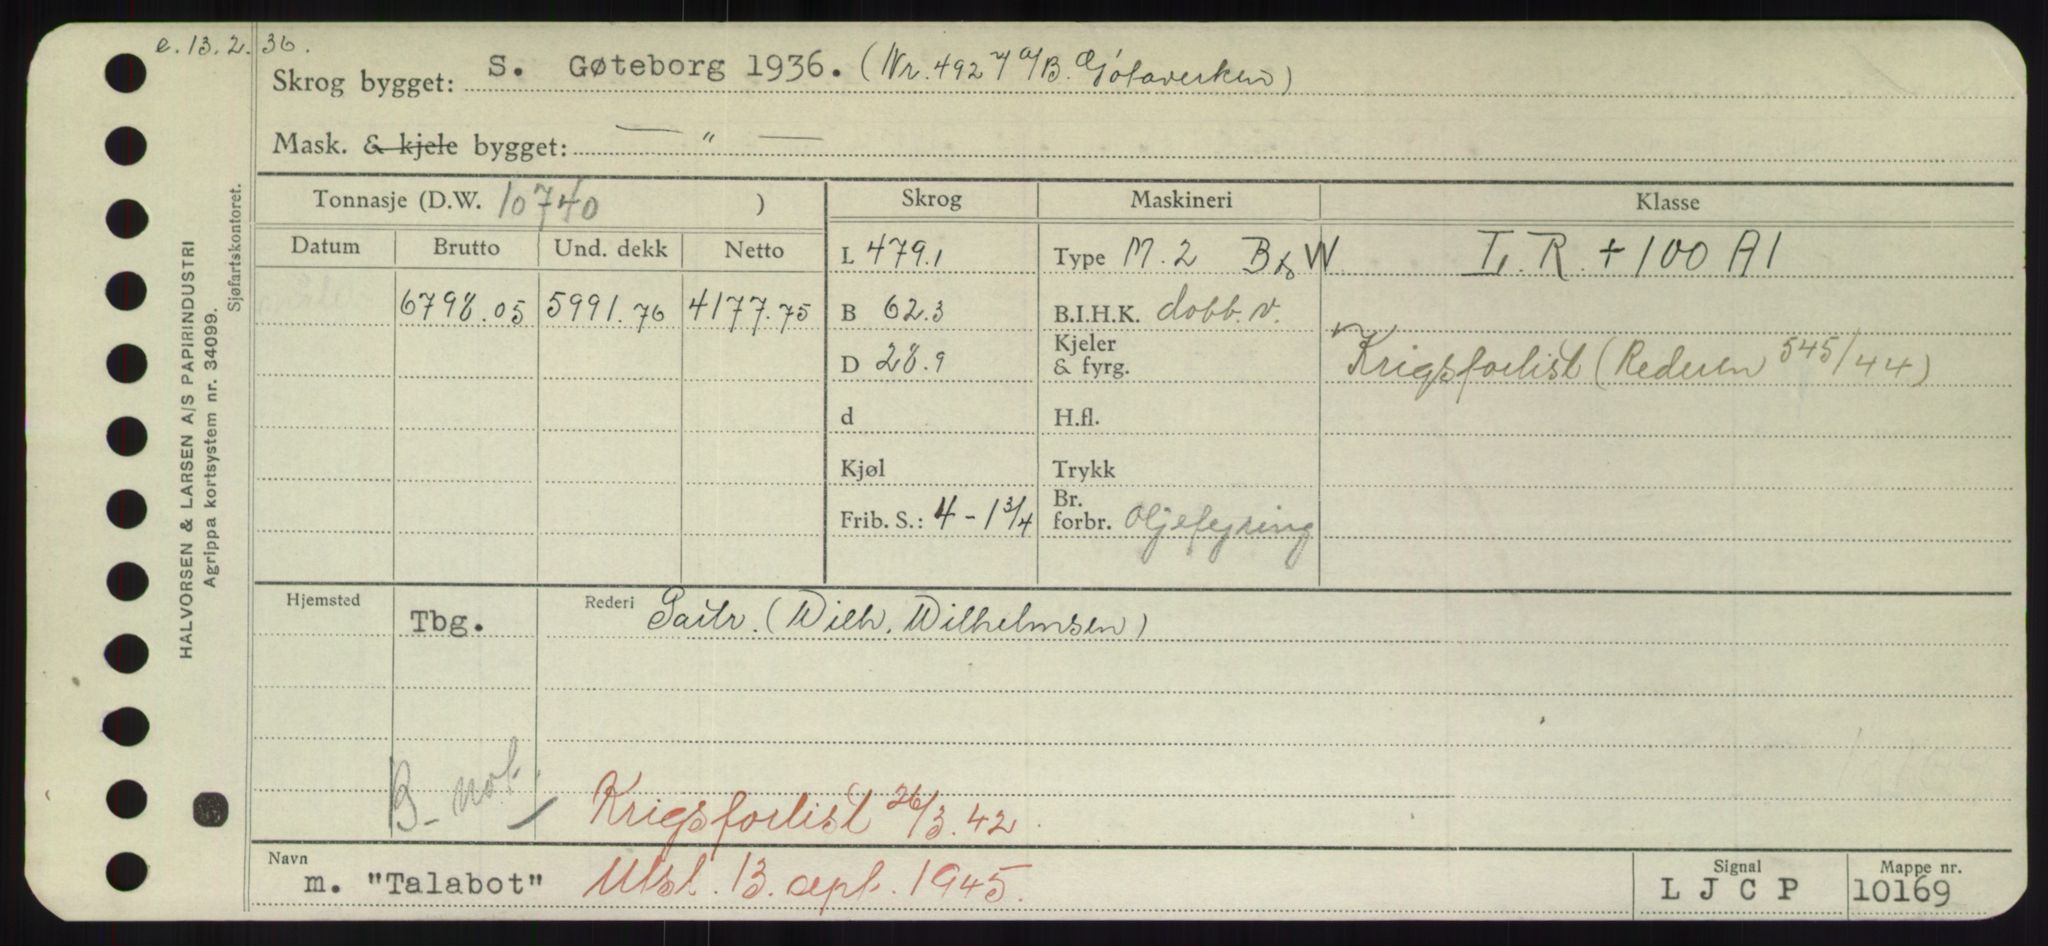 e. 13.2.36.
Skrog bygget: S. Gøteborg 1936. (Nr. 492 A/B. Götaverken)
Mask. & kjele bygget: — " —
Tonnasje (D.W. 10740 )
Skrog
Maskineri
Klasse
Datum Brutto Und. dekk Netto
L 479.1
Type M. 2 B&W
L. R. + 100 A1
6798.05 5991.76 4177.75
B 62.3
B.I.H.K. dobb. v.
D 28.9
Kjeler
& fyrg.
Krigsforlist (Rederen 545/44)
d
H.fl.
Kjøl
Trykk
Frib. S.: 4 - 1 3/4
Br.
forbr. Oljefyring
Hjemsted Tbg.
Rederi Partr. (Wilh. Wilhelmsen)
B- not.
Krigsforlist 26/3.42.
Navn
m. "Talabot" Utsl. 13. sept. 1945.
Signal
L J C P
Mappe nr.
10169
HALVORSEN & LARSEN A/S PAPIRINDUSTRI
Agrippa kortsystem nr. 34099.
Sjøfartskontoret.